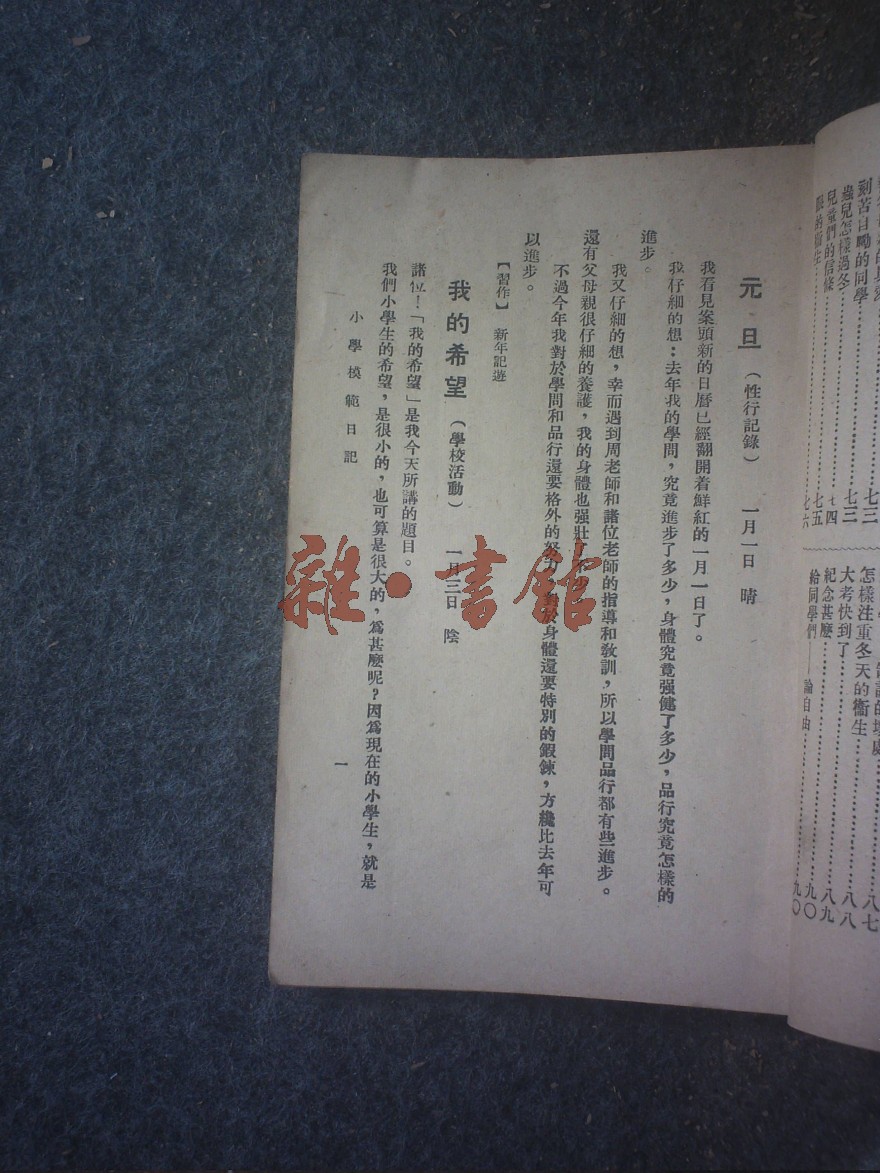 刻苦自勵的同學……七三
蟲兒怎樣過冬……七三
兒童們的信條……七四
的衞生……七五
七六
八七
怎樣注重冬天的衞生……八八
大考快到了……八八
紀念甚麽……八九
給同學們——論自由……九〇
九〇
元旦（性行記錄） 一月一日 晴
我看見案頭新的日曆已經翻開着鮮紅的一月一日了。
我仔細的想：去年我的學問，究竟進步了多少，身體究竟强健了多少，品行究竟怎樣的
進步。
我又仔細的想，幸而遇到周老師和諸位老師的指導和敎訓，所以學問品行都有些進步。
還有父母親很仔細的養護，我的身體也强壯
不過今年我對於學問和品行還要格外的努力，對於身體還要特別的鍛鍊，方纔比去年可
以進步。
【習作】 新年記遊
我的希望（學校活動） 一月三日 陰
諸位！「我的希望」是我今天所講的題目。
我們小學生的希望，是很小的，也可算是很大的，爲甚麽呢？因爲現在的小學生，就是
小學模範日記 一
雜·書館